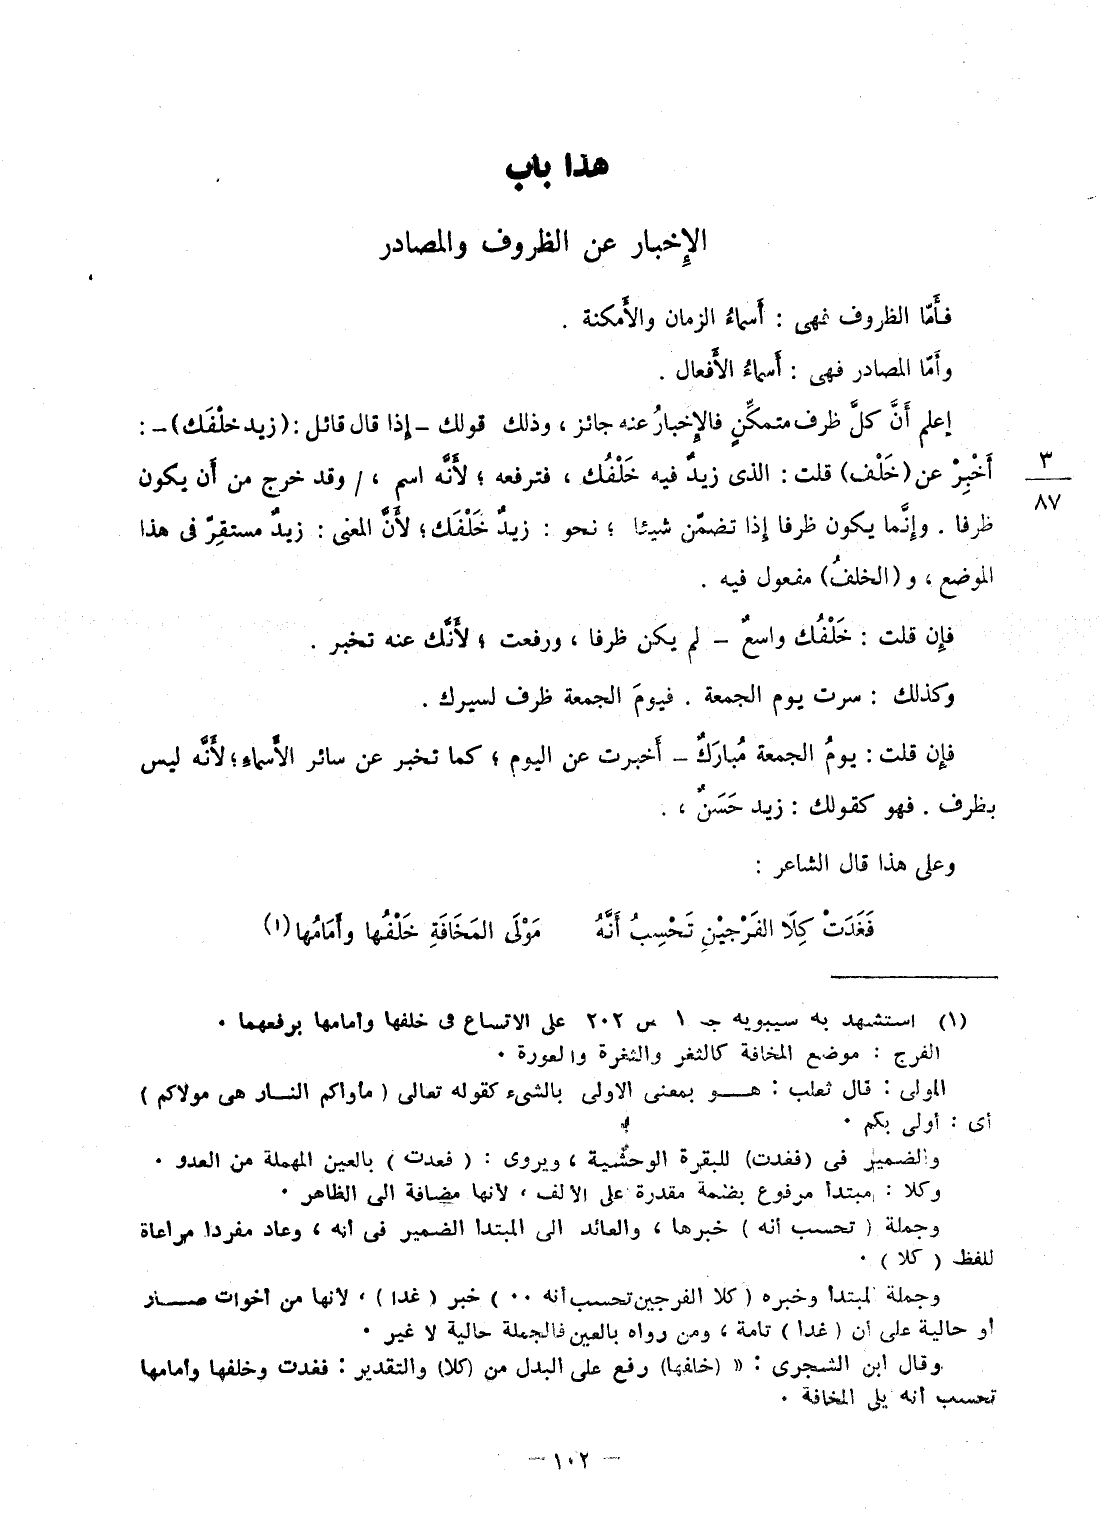 هذا باب
الإِخبار عن الظروف والمصادر
فأَمّا الظروف فهى : أَسماءُ الزمان والأَمكنة .
وأَمّا المصادر فهى : أَسماءُ الأَفعال .
إعلم أَنَّ كلَّ ظرف متمكِّنٍ فالإِخبارُ عنه جائز ، وذلك قولك – إذا قال قائل : (زيد خلْفَك) – :
أَخْبِرْ عن (خَلْف) قلت : الذى زيدٌ فيه خَلْفُك ، فترفعه ؛ لأَنَّه اسم ، / وقد خرج من أَن يكون
٣
٨٧
ظرفا . وإِنَّما يكون ظرفا إِذا تضمّن شيئا ؛ نحو : زيدٌ خَلْفَك ؛ لأَنَّ المعنى : زيدٌ مستقِرّ فى هذا
الموضع ، و (الخلفُ) مفعول فيه .
فإِن قلت : خَلْفُك واسعٌ – لم يكن ظرفا ، ورفعت ؛ لأَنَّك عنه تخبر .
وكذلك : سرت يوم الجمعة . فيومَ الجمعة ظرف لسيرك .
فإِن قلت : يومُ الجمعة مُبارَكٌ – أَخبرت عن اليوم ؛ كما تخبر عن سائر الأَسماءِ ؛ لأَنَّه ليس
بظرف . فهو كقولك : زيد حَسَنٌ ، .
وعلى هذا قال الشاعر :
فَغَدَتْ كِلَا الفَرْجيْنِ تَحْسِبُ أَنَّهُ مَوْلَى المَخَافَةِ خَلْفُها وأَمَامُها (١)
(١) استشهد به سيبويه جـ ١ ص ٢٠٢ على الاتساع فى خلفها وأمامها برفعهما .
الفرج : موضع المخافة كالثغر والثغرة والعورة .
المولى : قال ثعلب : هـــو بمعنى الاولى بالشىء كقوله تعالى ( مأواكم النـار هى مولاكم )
أى : أولى بكم .
والضمير فى (فغدت) للبقرة الوحشية ، ويروى : ( فعدت ) بالعين المهملة من العدو .
وكلا : مبتدأ مرفوع بضمة مقدرة على الألف ، لأنها مضافة الى الظاهر .
وجملة ( تحسب أنه ) خبرها ، والعائد الى المبتدأ الضمير فى أنه ، وعاد مفردا مراعاة
للفظ ( كلا ) .
وجملة المبتدأ وخبره ( كلا الفرجين تحسب أنه .. ) خبر ( غدا ) ، لأنها من أخوات صــار
أو حالية على أن ( غدا ) تامة ، ومن رواه بالعين فالجملة حالية لا غير .
وقال ابن الشجرى : « (خلفها) رفع على البدل من (كلا) والتقدير : فغدت وخلفها وأمامها
تحسب أنه يلى المخافة .
– ١٠٢ –